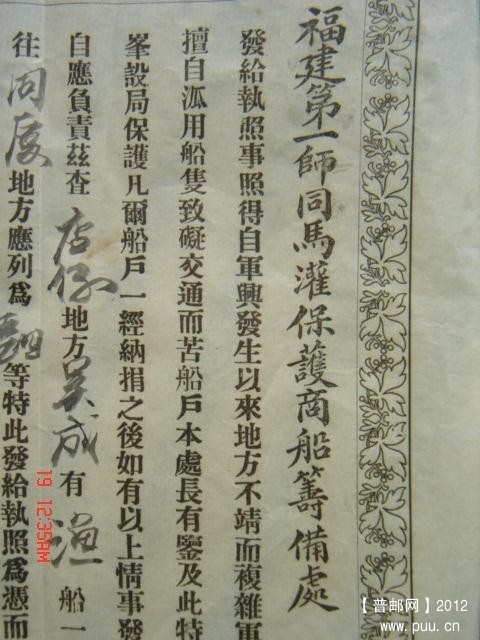 福建第一師同馬灌保護商船籌備處
發給執照事照得自軍興發生以來地方不靖而複雜軍
擅自泒用船隻致礙交通而苦船戶本處長有鑒及此特
峯設局保護凡爾船戶一經納捐之後如有以上情事發
自應負責茲查 地方吳成有漁船一
往同廈地方應列為 等特此發給執照爲憑而
19 12:35AM
【普邮网】2012
www.puu.cn